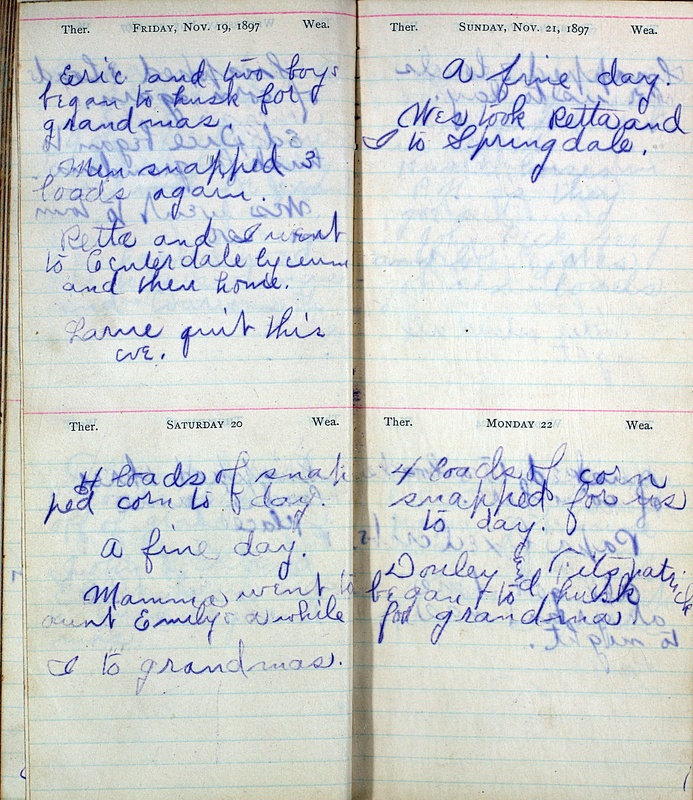 Ther. FRIDAY, NOV. 19, 1897 Wea.
Eric and two boys
began to husk for
grandmas.
Men snapped 3
loads again.
Retta and I went
to Centerdale lyceum
and then home.
quit this
eve.
Ther. SATURDAY 20 Wea.
4 loads of snap
ped corn to day.
A fine day.
Mamma went to
aunt Emily's awhile
I to grandmas.
Ther. SUNDAY, NOV. 21, 1897 Wea.
A fine day.
Wes took Retta and
I to Springdale.
Ther. MONDAY 22 Wea.
4 loads of corn
snapped for us
to day.
& Fitspatrick
began to husk
for grandma